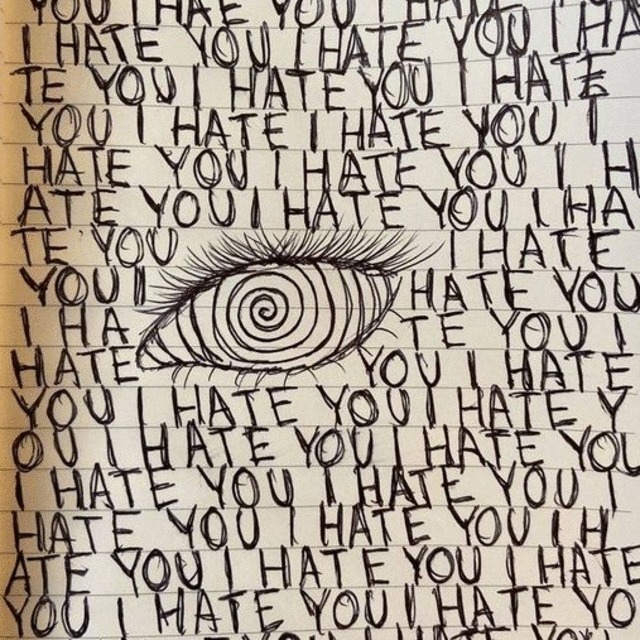 YOU I HAE YOU I HATE
I HATE YOU I HATE YOU I HA
TE YOU I HATE YOU I HATE
YOU I HATE I HATE YOU I
HATE YOU I HATE YOU I H
ATE YOU I HATE YOU I HA
TE YOU I HATE
YOU I HATE YOU
I HA TE YOU I
HATE YOU I HATE
YOU I HATE YOU I HATE Y
OU I HATE YOU I HATE YOU
I HATE YOU I HATE YOU I
HATE YOU I HATE YOU I H
ATE YOU I HATE YOU I HATE
YOU I HATE YOU I HATE YO
YOU I HATE YOU